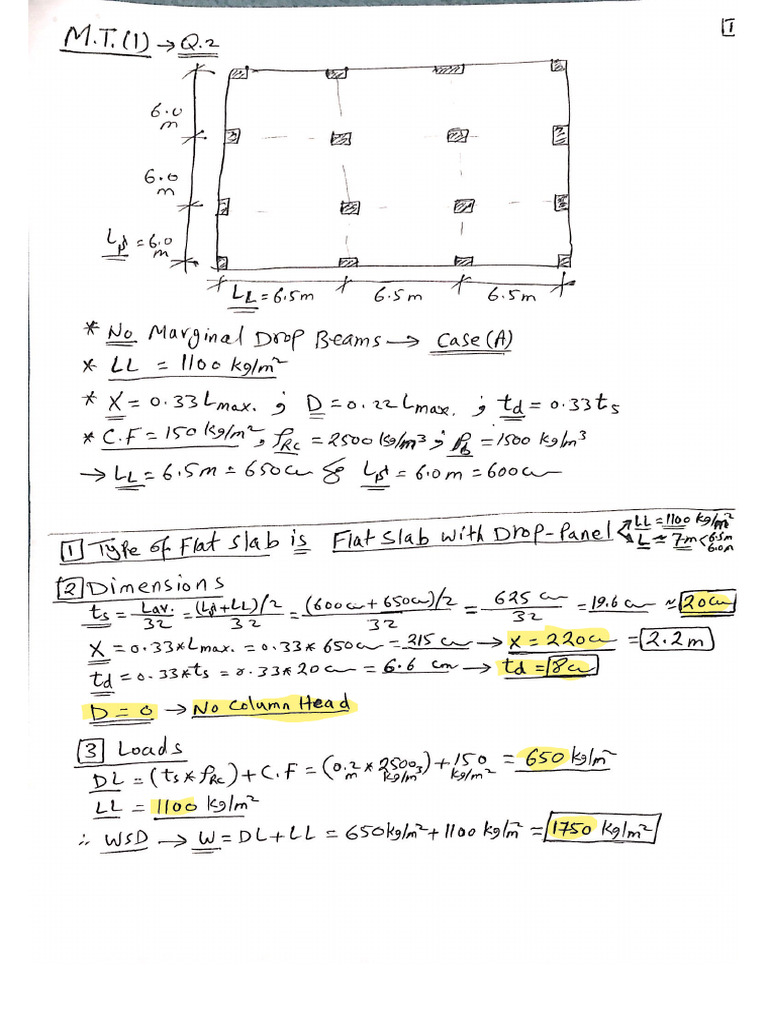 M.T.(1) → Q.2
1
6.0 m
6.0 m
Lβ = 6.0 m
LL = 6.5m 6.5m 6.5m
* No Marginal Drop Beams → Case (A)
* LL = 1100 kg/m²
* X = 0.33 Lmax. ; D = 0.22 Lmax. ; td = 0.33 ts
* C.F = 150 kg/m², ρRC = 2500 kg/m³ ; ρb = 1500 kg/m³
→ LL = 6.5m = 650cm & Lβ = 6.0m = 600cm
1 Type of Flat slab is Flat Slab with Drop-Panel LL = 1100 kg/m²
L ≈ 7m < 6.5m 6.0m
2 Dimensions
ts = Lav./32 = (Lβ+LL)/2/32 = (600cm+650cm)/2/32 = 625 cm/32 = 19.6 cm ≈ 20cm
X = 0.33*Lmax. = 0.33* 650cm = 215 cm → X = 220cm = 2.2m
td = 0.33*ts = 0.33*20cm = 6.6 cm → td = 8cm
D = 0 → No Column Head
3 Loads
DL = (ts*ρRC) + C.F = (0.2 m * 2500 kg/m³) + 150 kg/m² = 650 kg/m²
LL = 1100 kg/m²
∴ WSD → W = DL + LL = 650kg/m² + 1100 kg/m² = 1750 kg/m²